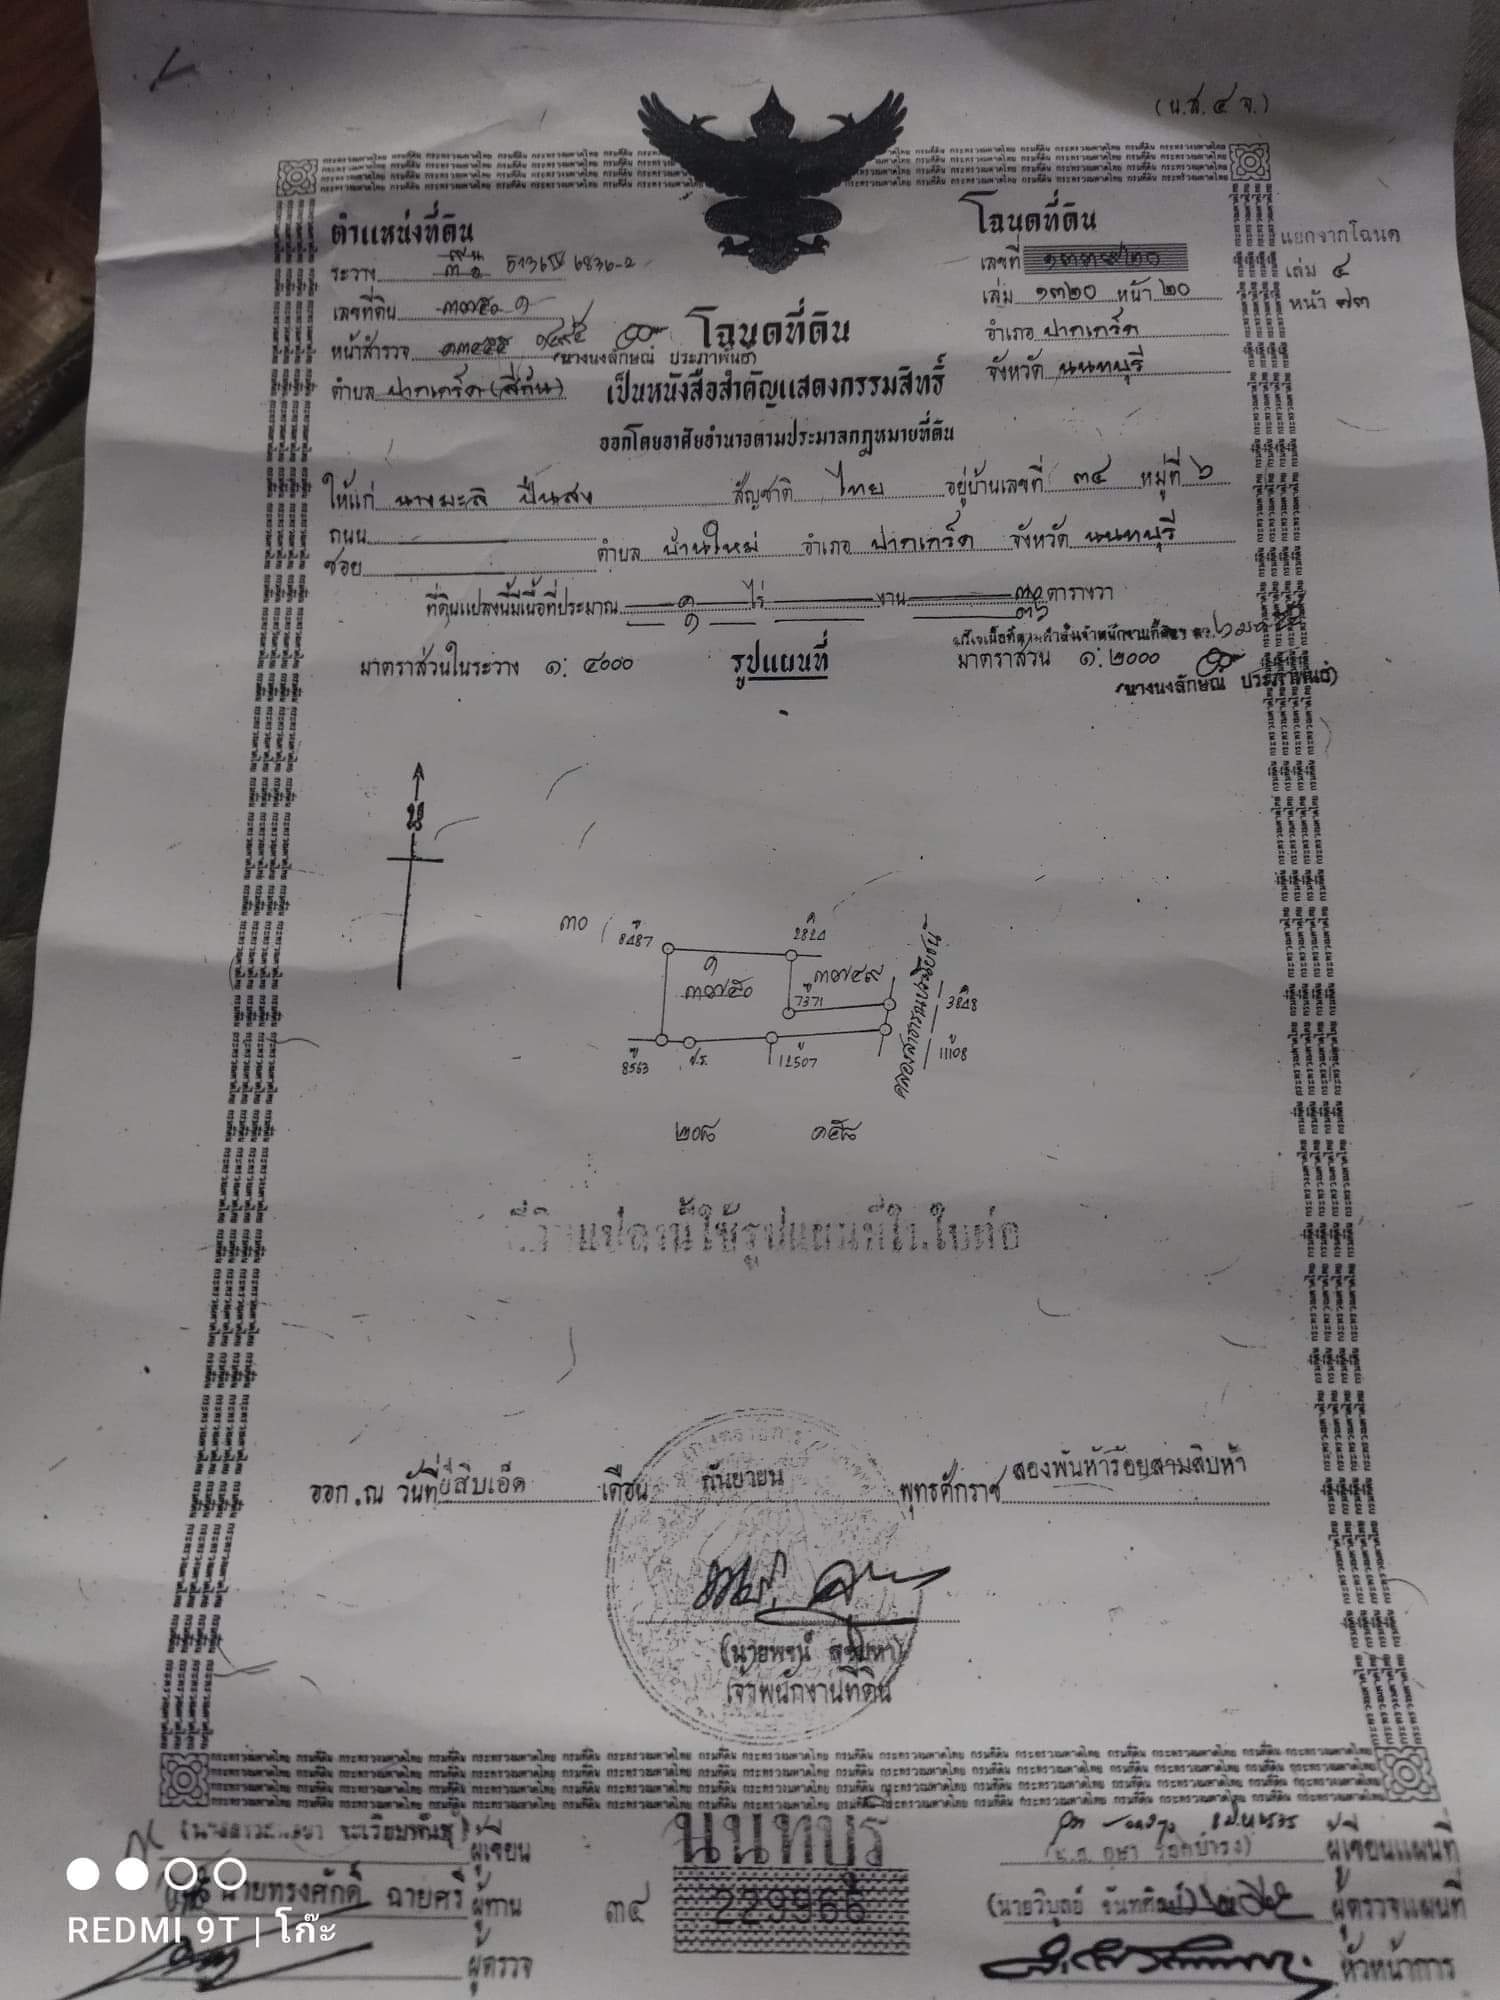 (น.ส.๔ จ.)
ตำแหน่งที่ดิน
โฉนดที่ดิน
ระวาง 5136 IV 6836-2
เลขที่
แยกจากโฉนด
เล่ม ๔
หน้า ๗๓
เลขที่ดิน ๓๗๕๐ ๑
เล่ม ๑๓๒๐ หน้า ๒๐
หน้าสำรวจ
โฉนดที่ดิน
อำเภอ ปากเกร็ด
(นางนงลักษณ์ ประภาพันธ์)
ตำบล ปากเกร็ด (สีกัน)
เป็นหนังสือสำคัญแสดงกรรมสิทธิ์
จังหวัด นนทบุรี
ออกโดยอาศัยอำนาจตามประมวลกฎหมายที่ดิน
ให้แก่ นางมะลิ ปืนสง สัญชาติ ไทย อยู่บ้านเลขที่ ๓๔ หมู่ที่ ๖
ถนน
ซอย ตำบล บ้านใหม่ อำเภอ ปากเกร็ด จังหวัด นนทบุรี
ที่ดินแปลงนี้มีเนื้อที่ประมาณ ๑ ไร่ งาน ๓๐ ตารางวา
๑ ๓๖
มาตราส่วนในระวาง ๑: ๔๐๐๐ รูปแผนที่ มาตราส่วน ๑: ๒๐๐๐
(นางนงลักษณ์ ประภาพันธ์)
น
๓๐
8487
2824
๑
๓๗๕๐
๓๗๔๙
7371
3848
คลองสาธารณประโยชน์
8563
ป.ร.
12507
11108
๒๐๘ ๑๕๘
ที่ดินแปลงนี้ใช้รูปแผนที่ในใบต่อ
ออก ณ วันที่ ยี่สิบเอ็ด เดือน กันยายน พุทธศักราช สองพันห้าร้อยสามสิบห้า
เจ้าพนักงานที่ดิน
ผู้เขียน
นนทบุรี
ผู้เขียนแผนที่
นายทรงศักดิ์ ฉายศรี ผู้ทาน
๓๔
229966
(นายวิบูลย์ จันทศิลป์) ผู้ตรวจแผนที่
ผู้ตรวจ
หัวหน้าการ
REDMI 9T | โก๊ะ